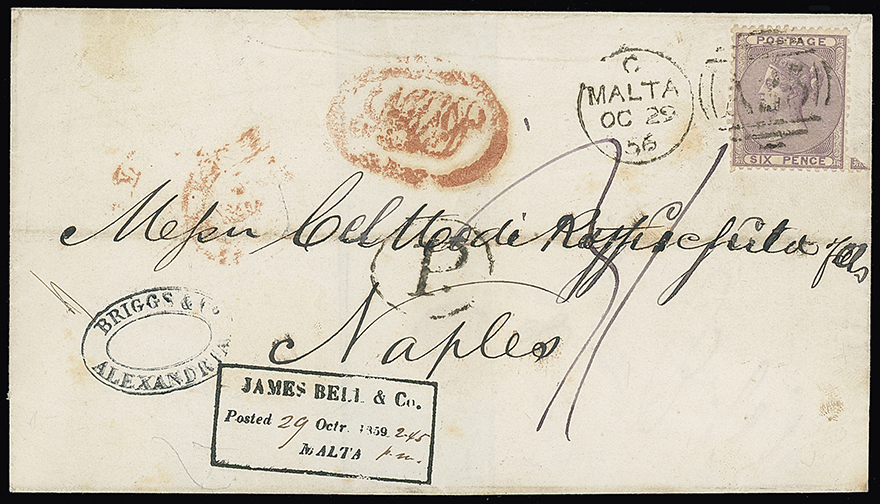 POSTAGE
SIX PENCE
C
MALTA
OC 29
56
Messrs C M de Rothschild & Sons
P
Naples
BRIGGS & Co
ALEXANDRIA
JAMES BELL & Co.
Posted 29 Octr. 1859 2.45
MALTA p.m.